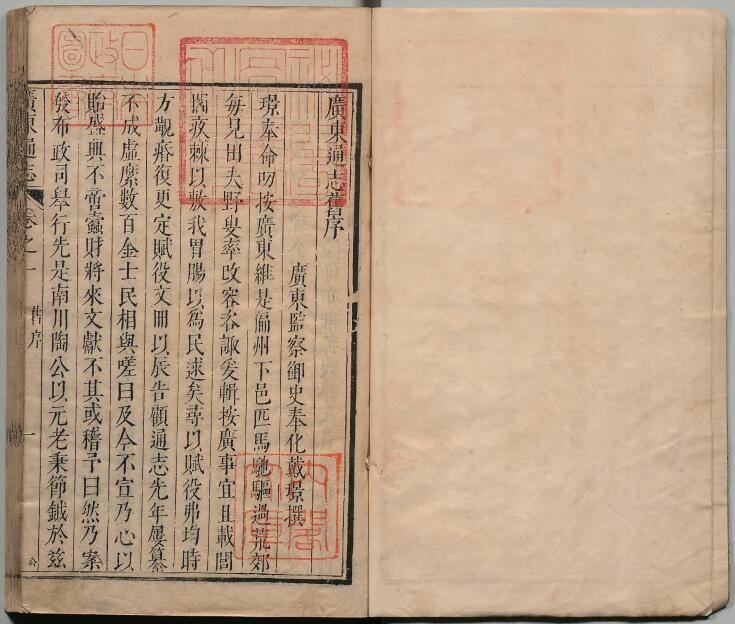 廣東通志舊序
廣東監察御史奉化戴璟撰
璟奉命叨按廣東維是偏州下邑匹馬馳驅過荒郊
每見田夫野叟率改容咨諏爰輯按廣事宜且載閭
閻疾棘以敷我胃腸以爲民逑矣尋以賦役弗均時
方觀瘠復更定賦役文冊以辰告顧通志先年屢纂
不成虛縻數百金士民相與嗟曰及今不宣乃心以
貽盛典不啻蠹財將來文獻不其或稽予曰然乃案
發布政司舉行先是南川陶公以元老秉節鉞於兹
廣東通志
卷之一
舊序
一